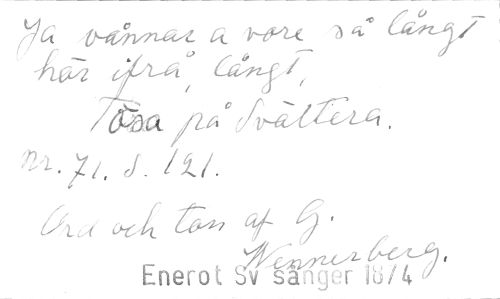 Ja vånnar a vore så långt
här ifrå, långt,
Tösa på Svältera.
nr. 71. s. 121.
Ord och ton af G.
Wennerberg.
Enerot Sv sånger 18/4